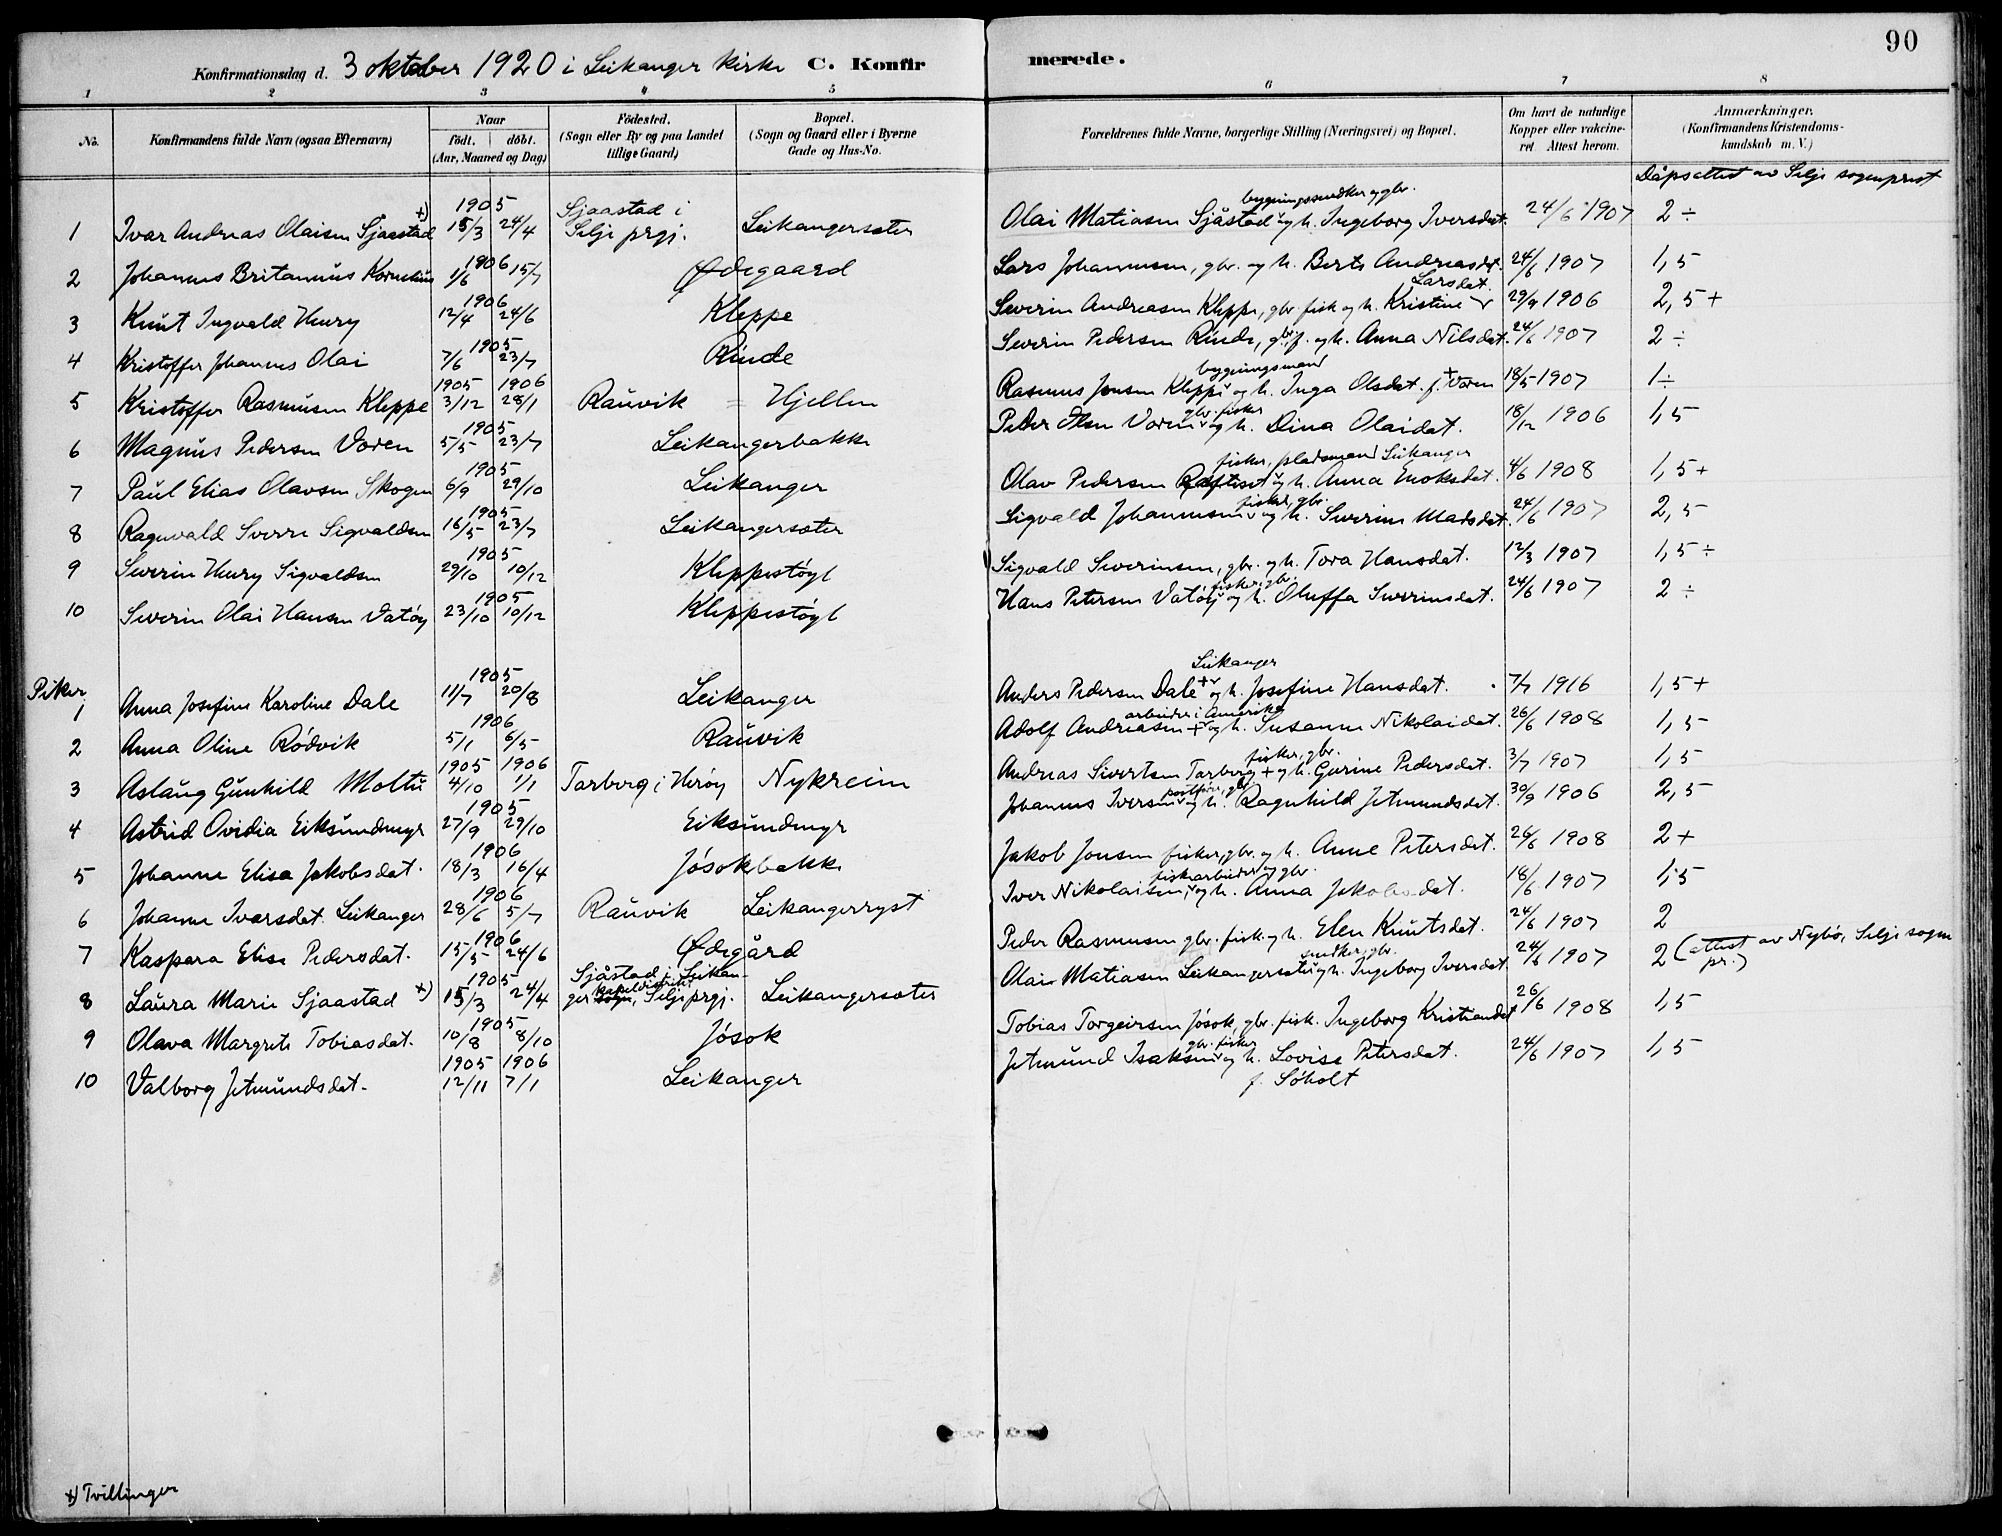 90
Konfirmationsdag d. 3 oktober 1920 i Leikanger kirke C. Konfirmerede.
1 2 3 4 5 6 7 8
No. Konfirmandens fulde Navn (ogsaa Efternavn) Naar födt. döbt. (Aar, Maaned og Dag) Födested. (Sogn eller By og paa Landet tillige Gaard) Bopæl. (Sogn og Gaard eller i Byerne Gade og Hus-No. Forældrenes fulde Navne, borgerlige Stilling (Næringsvei) og Bopæl. Om havt de naturlige Kopper eller vakcineret Attest herom. Anmærkninger. (Konfirmandens Kristendomskundskab m. V.)
Dåpsattest av Selje sogneprest
1 Ivar Andreas Olaisen Sjaastad +) 1905 15/3 24/4 Sjaastad i Selje prgj. Leikangersæter Olai Matiasen Sjåstad bygningssnedker og gbr. og h. Ingeborg Iversdat. 24/6 1907 2 ÷
2 Johannes Britannus Kornelius 1906 1/6 15/7 Ødegaard Lars Johannessen, gbr. og h. Berte Andreasdat. 24/6 1907 1,5
3 Knut Ingvald Henry 1906 12/4 24/6 Kleppe Severin Andreasen Kleppe, gbr. fisk og h. Kristine Larsdat. 29/9 1906 2,5 +
4 Kristoffer Johannes Olai 1905 7/6 23/7 Rinde Severin Pedersen Rinde, gbr. f. og h. Anna Nilsdat. 24/6 1907 2 ÷
5 Kristoffer Rasmusen Kleppe 1905 3/12 1906 28/1 Rauvik = Hjellen Rasmus Jensen Kleppe bygningsmand og h. Inga Olsdat. f. + Voren 18/5 1907 1 ÷
6 Magnus Pedersen Voren 1905 5/5 23/7 Leikangerbakke Peder Olsen Voren gbr. fisker og h. Dina Olaidat. 18/12 1906 1,5
7 Paul Elias Olavsen Skogen 1905 6/9 29/10 Leikanger Olav Pedersen fisker, pladsmand Leikanger og h. Anna Enoksdat. 4/6 1908 1,5 +
8 Ragnvald Sverre Sigvaldsen 1905 16/5 23/7 Leikangersæter Sigvald Johannesen fisker, gbr. og h. Severine Madsdat. 24/6 1907 2,5
9 Severin Henry Sigvaldsen 1905 29/10 10/12 Kleppestøyl Sigvald Severinsen, gbr. og h. Tora Hansdat. 12/3 1907 1,5 ÷
10 Severin Olai Hansen Vatöy 1905 23/10 10/12 Kleppestøyl Hans Petersen Vatöy fisker, gbr. og h. Oluffa Severinsdat. 24/6 1907 2 ÷
Piker
1 Anna Josefine Karoline Dale 1905 11/7 20/8 Leikanger Anders Pedersen Dale + Leikanger og h. Josefine Hansdat. 7/7 1916 1,5 +
2 Anna Oline Rödvik 1906 5/1 6/5 Rauvik Adolf Andreasen + arbeider i Amerika og h. Susanne Nikolaidat. 26/6 1908 1,5
3 Aslaug Gunhild Moltu 1905 4/10 1906 1/1 Tarberg i Heröy Nykreim Andreas Sivertsen Tarberg + fisker, gbr. og h. Gurine Pedersdat. 3/7 1907 1,5
4 Astrid Ovidia Eiksundmyr 1905 27/9 29/10 Eiksundmyr Johannes Iversen gbr og h. Ragnhild Jetmundsdat. 30/9 1906 2,5
5 Johanne Elisa Jakobsdat. 1906 18/3 16/4 Jösokbakke Jakob Jonsen fisker, gbr. og h. Anne Petersdat. 26/6 1908 2 +
6 Johanne Ivarsdat. Leikanger 1906 28/6 5/7 Rauvik Leikangerryst Iver Nikolaisen, fiskarbeider og gbr. og h. Anna Jakobsdat. 18/6 1907 1,5
7 Kaspara Elise Pedersdat. 1906 15/5 24/6 Ødegård Peder Rasmusen gbr. fisk. og h. Elen Knutsdat. 24/6 1907 2
8 Laura Marie Sjaastad +) 1905 15/3 24/4 Sjåstad i Leikanger kapeldistrikt sogn, Selje prgj. Leikangersæter Olai Matiasen Leikangersæter snedker, gbr. og h. Ingeborg Iversdat 24/6 1907 2 (attest av Nybø, Selje sogn pr.)
9 Olava Margrete Tobiasdat. 1905 10/8 8/10 Jösok Tobias Torgeirsen Jösok, gbr. fisk. Ingeborg Kristiandat 26/6 1908 1,5
10 Valborg Jetmundsdat. 1905 12/11 1906 7/1 Leikanger Jetmund Isaksen gbr. fisker og h. Lovise Petersdat. f. Söholt 24/6 1907 1,5
+) Tvillinger